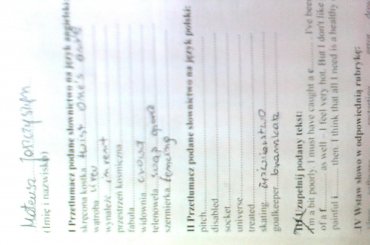 Mateusz
(Imię i nazwisko)
I Przetłumacz podane słownictwo na język angielski:
skręcona kostka twist one's ankle
wątroba liver
wynaleźć invent
przestrzeń kosmiczna
fabuła
widownia crowd
telenowela soap opera
szermierka fencing
II Przetłumacz podane słownictwo na język polski:
pitch
disabled
socket
reverse
treaty
skating łyżwiarstwo
goalkeeper bramkarz
III Uzupełnij podany tekst:
I'm a bit poorly. I must have caught a c I've been
of a f as well – I feel very hot. But I don't like
painful i then. I think that all I need is a healthy
IV Wstaw słowo w odpowiednią rubrykę: